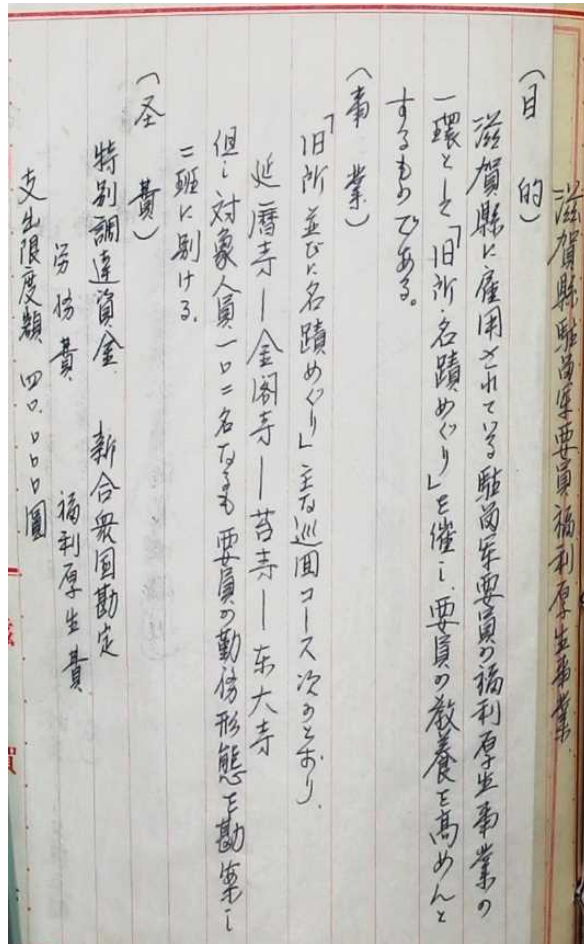 滋賀縣駐留军要員福利厚生事業
(目的)
滋賀縣に雇用されている駐留军要員の福利厚生事業の
一環として「旧所・名蹟めぐり」を催し、要員の教養を高めんと
するものである。
(事業)
「旧所並びに名蹟めぐり」主な巡回コース次のとおり、
延暦寺―金阁寺―苔寺―东大寺
但し対象人員一〇二名なるも要員の勤務形態を勘案し
二班に别ける。
(圣費)
特别調達資金 新合衆国勘定
労務費 福利厚生費
支出限度額 四〇、〇〇〇圓
賀